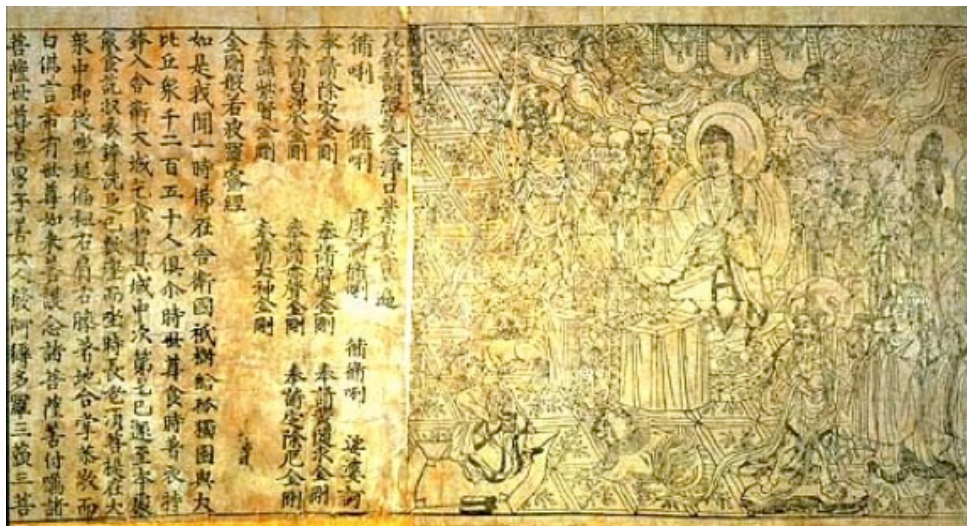 凡欲讀經先念淨口業真言一遍
脩唎 脩唎 摩訶脩唎 脩脩唎 娑婆訶
奉請除灾金剛 奉請辟毒金剛 奉請隨求金剛
奉請白淨水金剛 奉請赤聲金剛 奉請定除厄金剛
奉請紫賢金剛 奉請大神金剛
金剛般若波羅蜜經
如是我聞一時佛在舍衛國祇樹給孤獨園與大
比丘衆千二百五十人俱尒時世尊食時著衣持
鉢入舍衛大城乞食於其城中次第乞已還至本處
飯食訖収衣鉢洗足已敷座而坐時長老須菩提在大
衆中即從座起偏袒右肩右膝著地合掌恭敬而
白佛言希有世尊如來善護念諸菩薩善付囑諸
菩薩世尊善男子善女人發阿耨多羅三藐三菩